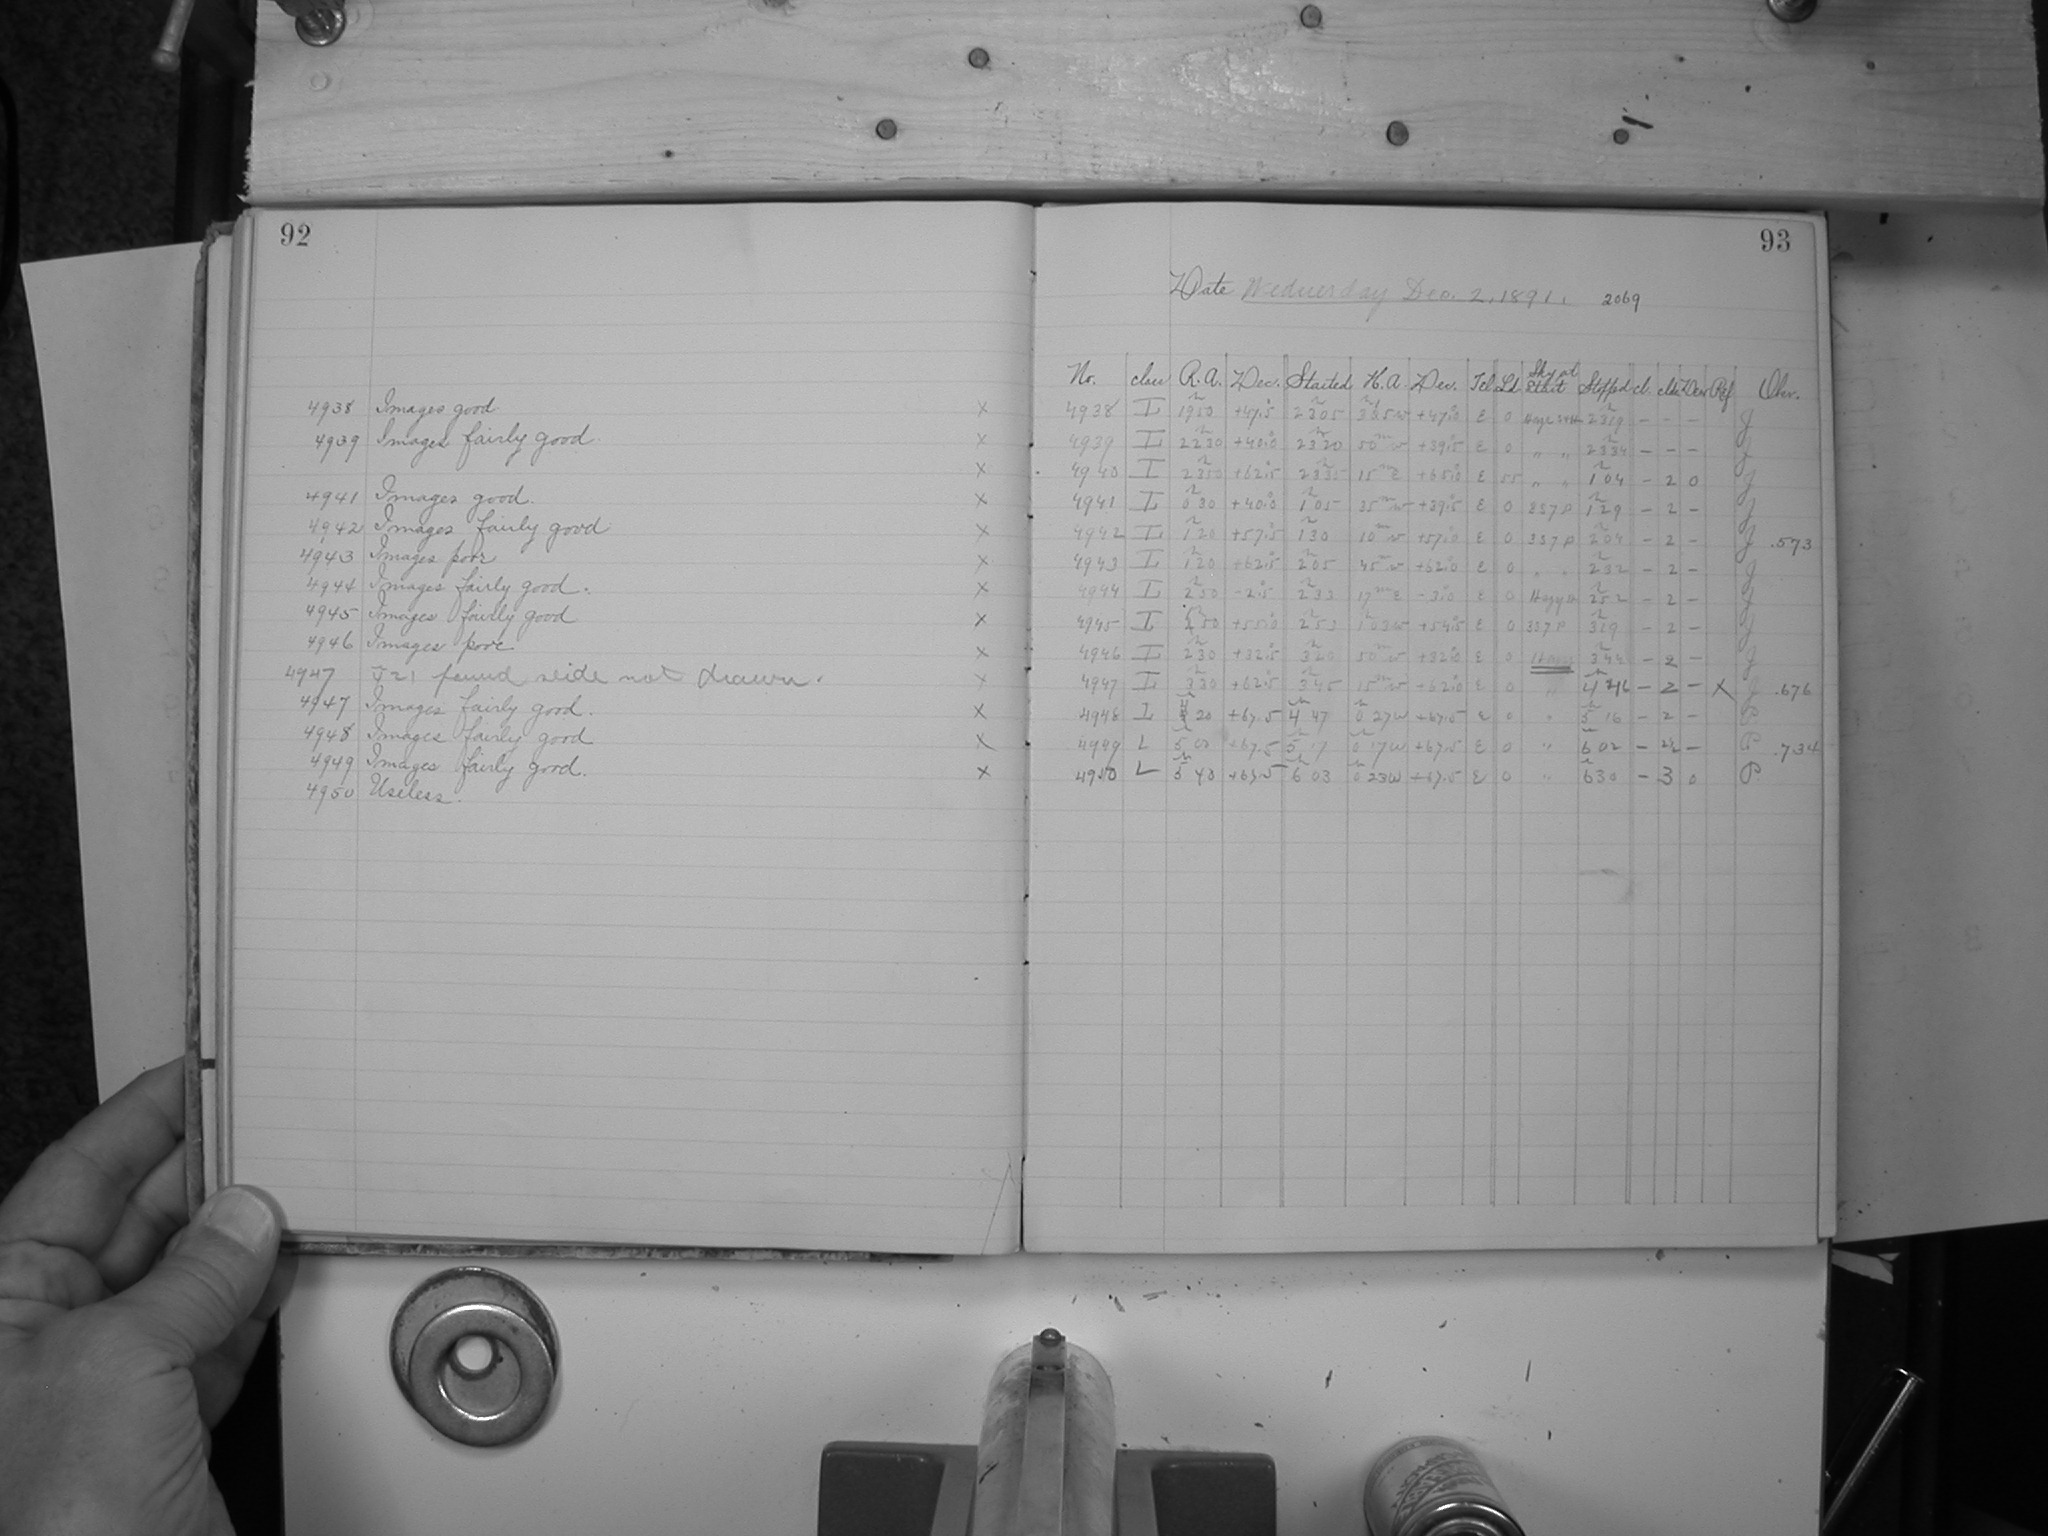 92
4938 Images good ×
4939 Images fairly good. ×
×
4941 Images good. ×
4942 Images fairly good ×
4943 Images poor ×
4944 Images fairly good. ×
4945 Images fairly good ×
4946 Images poor ×
4947 found side not drawn. ×
4947 Images fairly good. ×
4948 Images fairly good ×
4949 Images fairly good. ×
4950 Useless.
93
Date Wednesday Dec. 2, 1891. 2069
No. class R.A. Dec. Started H.A. Dec. Tel Ld Sky at Start Stopped cl. Dew Ref Obsr.
4938 I 19h50 +47°.5 23h05 +47°.0 E 0 23h19 – – – J
4939 I 22h30 +40°.0 23h20 50m w +39°.5 E 0 " " 23h34 – – – J
4940 I 23h50 +62°.5 23h35 15m E +65°.0 E 55 " " 1h04 – 2 0 J
4941 I 0h30 +40°.0 1h05 35m w +39°.5 E 0 337 P 1h29 – 2 – J
4942 I 1h20 +57°.5 1h30 10m w +57°.0 E 0 337 P 2h04 – 2 – J .573
4943 I 1h20 +62°.5 2h05 45m w +62°.0 E 0 " " 2h32 – 2 – J
4944 I 2h50 –2°.5 2h33 17m E –3°.0 E 0 2h52 – 2 – J
4945 I 50 +55°.0 2h53 1h03w +54°.5 E 0 337 P 3h19 – 2 – J
4946 I 2h30 +32°.5 3h20 50m w +32°.0 E 0 Hazy 3h44 – 2 – J
4947 I 3h30 +62°.5 3h45 15m w +62°.0 E 0 " 4h46 – 2 – × J .676
4948 I 4h20 +67.5 4h47 0h27w +67.5 E 0 " 5h16 – 2 – P
4949 L 5h00 +67.5 5h17 0h17w +67.5 E 0 " 6h02 – 2½ – P .734
4950 L 5h40 +67.5 6h03 0h23w +67.5 E 0 " 6h30 – 3 0 P